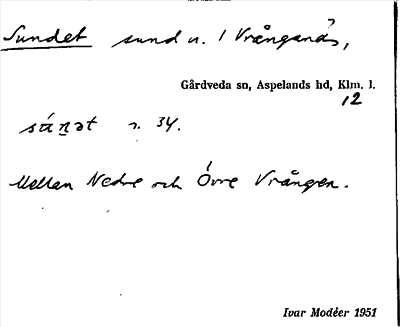 Sundet sund n. 1 Vrånganäs,
Gårdveda sn, Aspelands hd, Klm. l.
12
n. 34.
Mellan Nedre och Övre Vrången.
Ivar Modéer 1951